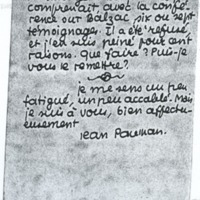 comprenait, avec la confé-
rence sur Balzac, six ou sept
témoignages. Il a été refusé,
et j'en suis peiné pour cent
raisons. Que faire ? Puis-je
vous le remettre ?
je me sens un peu
fatigué, un peu accablé. Mais
je suis à vous, bien affectu-
eusement
Jean Paulhan.